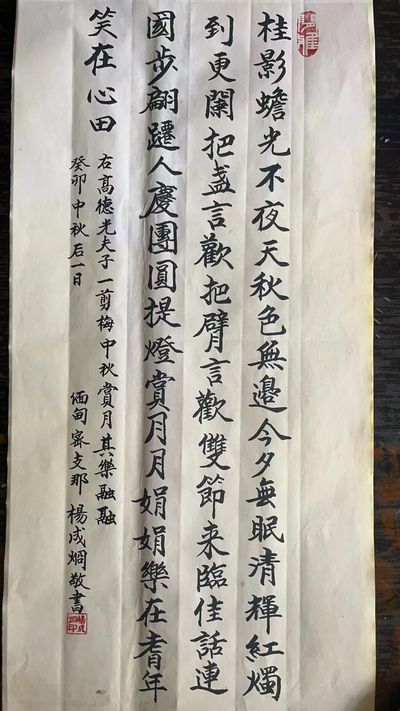 桂影蟾光不夜天秋色無邊今夕無眠清輝紅燭
到更闌把盞言歡把臂言歡雙節来臨佳話連
國步翩躚人慶團圓提燈賞月月娟娟樂在耆年
笑在心田
右高德光夫子一剪梅中秋賞月其樂融融
癸卯中秋后一日 緬甸密支那楊成烱敬書